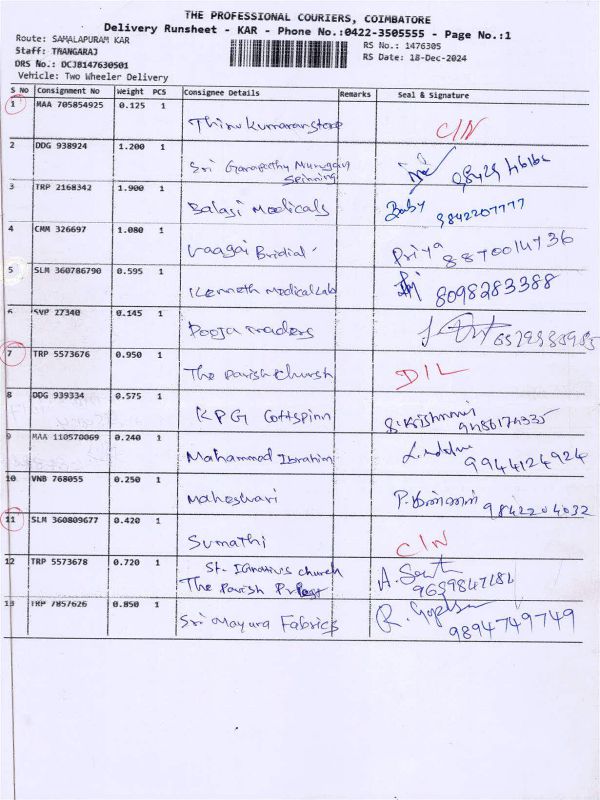 THE PROFESSIONAL COURIERS, COIMBATORE
Delivery Runsheet - KAR - Phone No.:0422-3505555 - Page No.:1
Route: SAMALAPURAM KAR
RS No.: 1476305
Staff: THANGARAJ
RS Date: 18-Dec-2024
DRS No.: DCJ8147630501
Vehicle: Two Wheeler Delivery
S No Consignment No Weight PCS Consignee Details Remarks Seal & Signature
1 MAA 705854925 0.125 1
Thirukumaran store C/N
2 DDG 938924 1.200 1
Sri Ganapathy Murugan
Spinning
3 TRP 2168342 1.900 1
Balaji Medicals Baby 9842207777
4 CMM 326697 1.080 1
Vaagai Bridial Priya 8870014736
5 SLM 360786790 0.595 1
Kenneth Medical Lab 8098283388
6 SVP 27340 0.145 1
Pooja Traders
7 TRP 5573676 0.950 1
The Parish Chursh D/L
8 DDG 939334 0.575 1
KPG Cottspinn 9486174335
9 MAA 110570069 0.240 1
Mahammad Ibrahim 9944124924
10 VNB 768055 0.250 1
Maheswari 9842204032
11 SLM 360809677 0.420 1
Sumathi C/N
12 TRP 5573678 0.720 1
St. Ignatius church
The Parish Priest
13 TRP 7857626 0.850 1
Sri Mayura Fabrics 9894749749